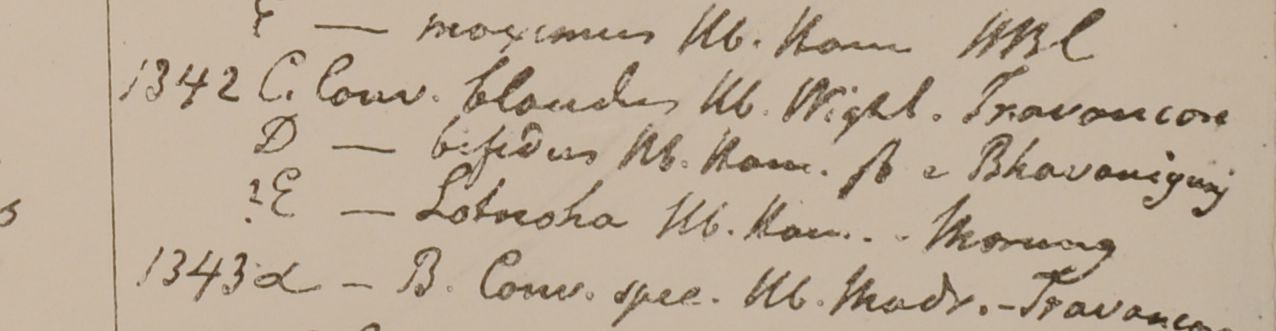 — maximus Hb. Ham HBC
1342 C. Conv. blandus Hb. Wight. Travancore
D — bifidus Hb. Ham. β e Bhavanigunj
?E — Lotnoha Hb. Ham. - Morung
1343 α - B. Conv. spec. Hb. Madr. - Travancor